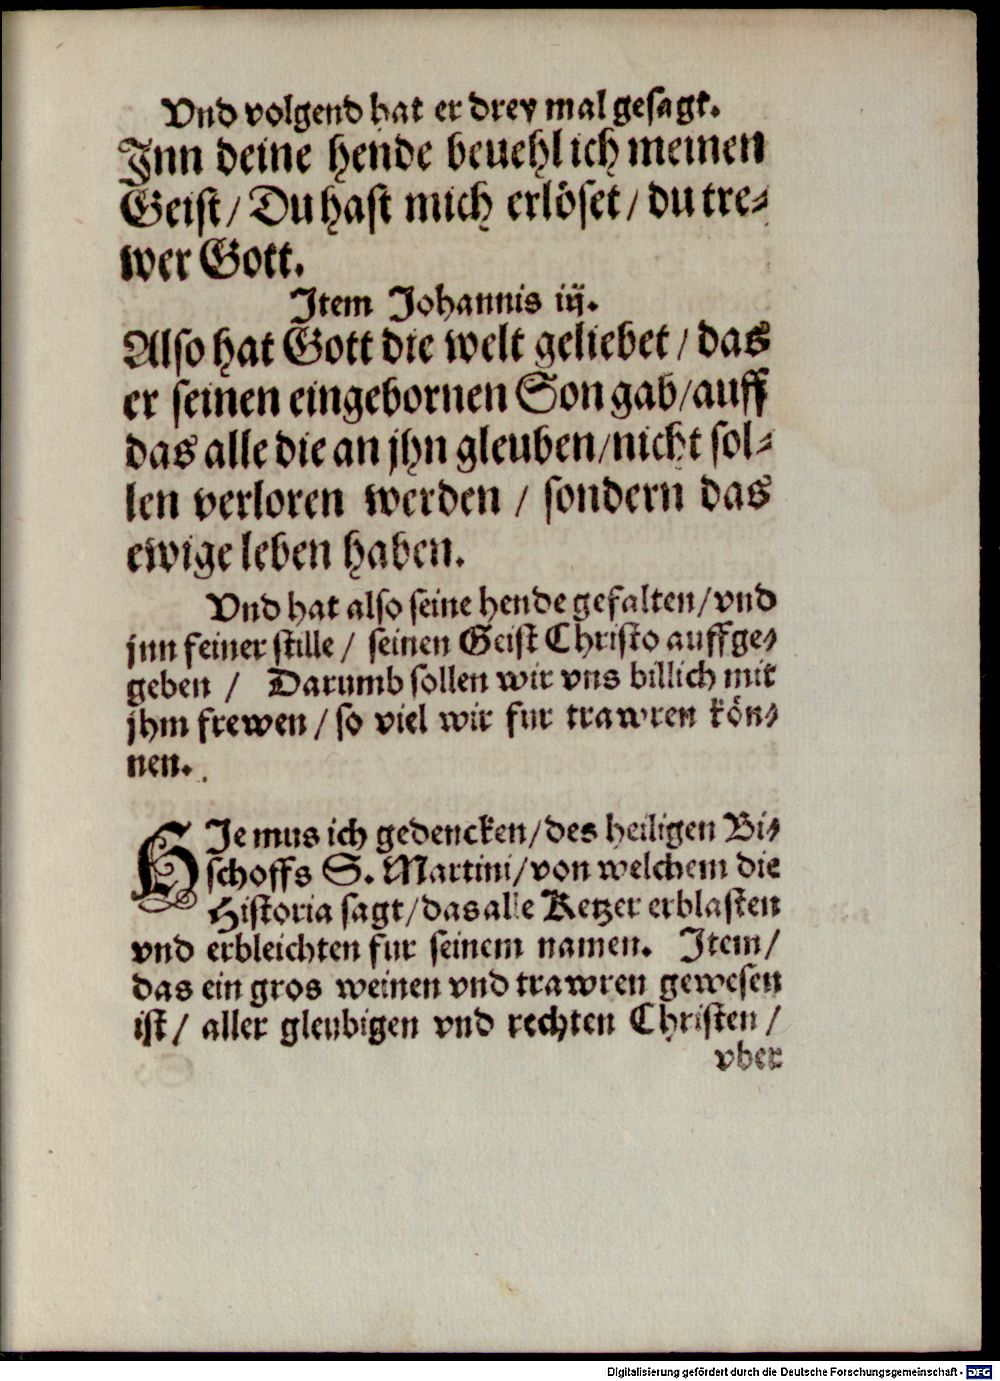 Vnd volgend hat er drey mal gesagt.
Jnn deine hende beuehl ich meinen
Geist / Du hast mich erlöset / du tre-
wer Gott.
Jtem Johannis iij.
Also hat Gott die welt geliebet / das
er seinen eingebornen Son gab / auff
das alle die an jhn gleuben / nicht sol-
len verloren werden / sondern das
ewige leben haben.
Vnd hat also seine hende gefalten / vnd
jnn feiner stille / seinen Geist Christo auffge-
geben / Darumb sollen wir vns billich mit
jhm frewen / so viel wir fur trawren kön-
nen.
HJe mus ich gedencken / des heiligen Bi-
schoffs S. Martini / von welchem die
Historia sagt / das alle Ketzer erblasten
vnd erbleichten fur seinem namen. Jtem /
das ein gros weinen vnd trawren gewesen
ist / aller gleubigen vnd rechten Christen /
vber
Digitalisierung gefördert durch die Deutsche Forschungsgemeinschaft - DFG